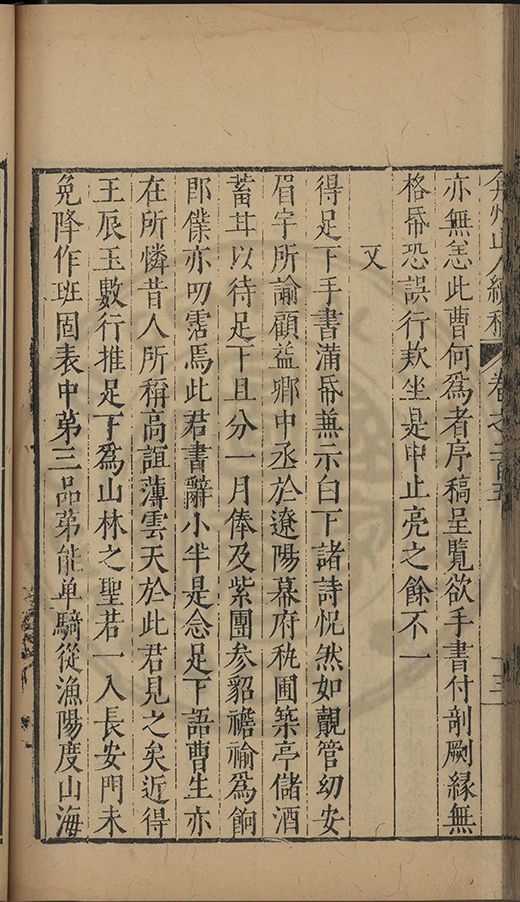 弇州山人續稿 卷之二百五 十三
亦無恙此曹何為者序稿呈覽欲手書付剞劂緣無
格帋恐誤行欵坐是中止亮之餘不一
又
得足下手書滿帋兼示白下諸詩怳然如覿管幼安
眉宇所諭顧益卿中丞於遼陽幕府秇圃築亭儲酒
蓄茸以待足下且分一月俸及紫團參貂襜褕為餉
即僕亦叨霑焉此君書辭小半是念足下語曹生亦
在所憐昔人所稱高誼薄雲天於此君見之矣近得
王辰玉數行推足下為山林之聖若一入長安門未
免降作班固表中第三品苐能单騎從漁陽度山海